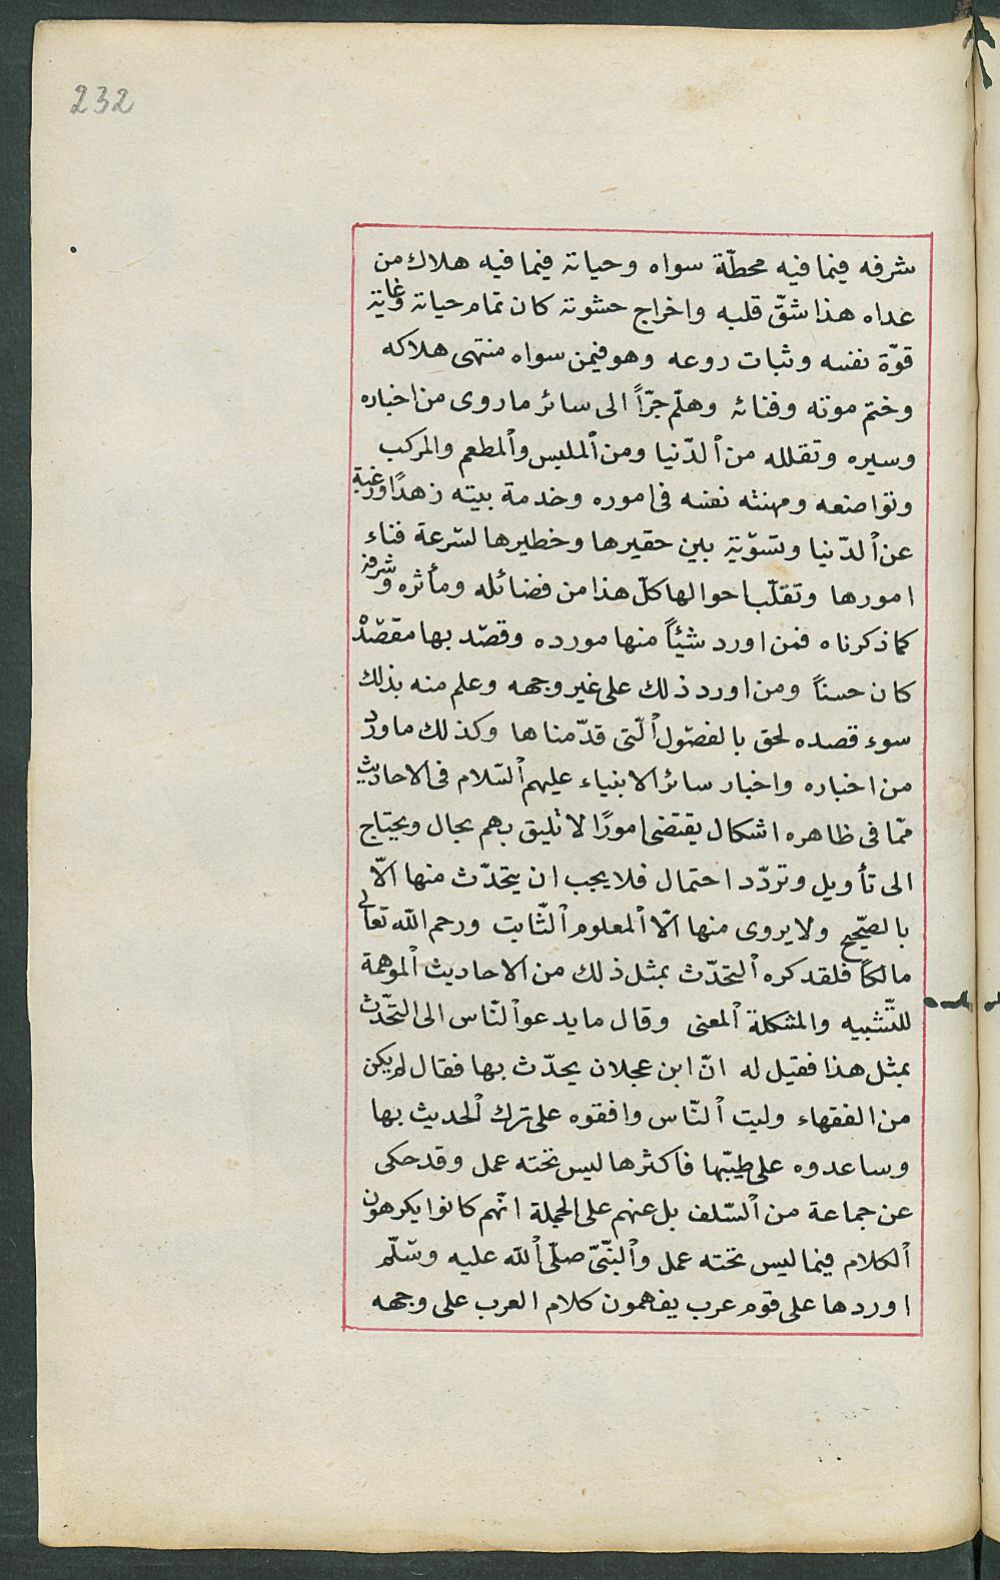 232
شرفه فيما فيه محطّة سواه وحياته فيما فيه هلاك من
عداه هذا شقّ قلبه واخراج حشوته كان تمام حياته وغاية
قوّة نفسه وثبات روعه وهو فيمن سواه منتهى هلاكه
وختم موته وفنائه وهلّم جرّاً الى سائر ما روى من اخباره
وسيره وتقلله من ٱلدّنيا ومن ٱلملبس وٱلمطعم والمركب
وتواضعه ومهنته نفسه فى اموره وخدمة بيته زهدًا ورغبة
عن ٱلدّنيا وتسوّية بين حقيرها وخطيرها لسّرعة فناء
امورها وتقلّب احوالها كلّ هذا من فضائله ومأثره وشرفه
كما ذكرناه فمن اورد شيئاً منها مورده وقصّد بها مقصّدْ
كان حسناً ومن اورد ذلك على غير وجهه وعلم منه بذلك
سوء قصده لحق بالفصّول ٱلّتى قدّمناها وكذلك ماورد
من اخباره واخبار سائر الانبياء عليهم ٱلسّلام فى الاحاديث
ممّا فى ظاهره اشكال يقتضى امورًا لا تليق بهم بحال ويحتاج
الى تأويل وتردّد احتمال فلا يجب ان يتحدّث منها الاّ
بالصّحيح ولا يروى منها الاّ ٱلمعلوم ٱلثّابت ورحم اللّه تعالى
مالكاً فلقد كره ٱلتحدّث بمثل ذلك من الاحاديث ٱلموهمة
للتّشبيه والمشكلة ٱلمعنى وقال ما يدعوا ٱلنّاس الى التحّدّث
بمثل هذا فقيل له انّ ابن عجلان يحدّث بها فقال لم يكن
من الفقهاء وليت ٱلنّاس وافقوه على ترك ٱلحديث بها
وساعدوه على طيّها فاكثرها ليس تحته عمل وقد حكى
عن جماعة من ٱلسّلف بل عنهم على الجملة انّهم كانوا يكرهون
ٱلكلام فيما ليس تحته عمل وٱلنّبّى صلّى ٱللّه عليه وسّلّم
اوردها على قوم عرب يفهمون كلام العرب على وجهه